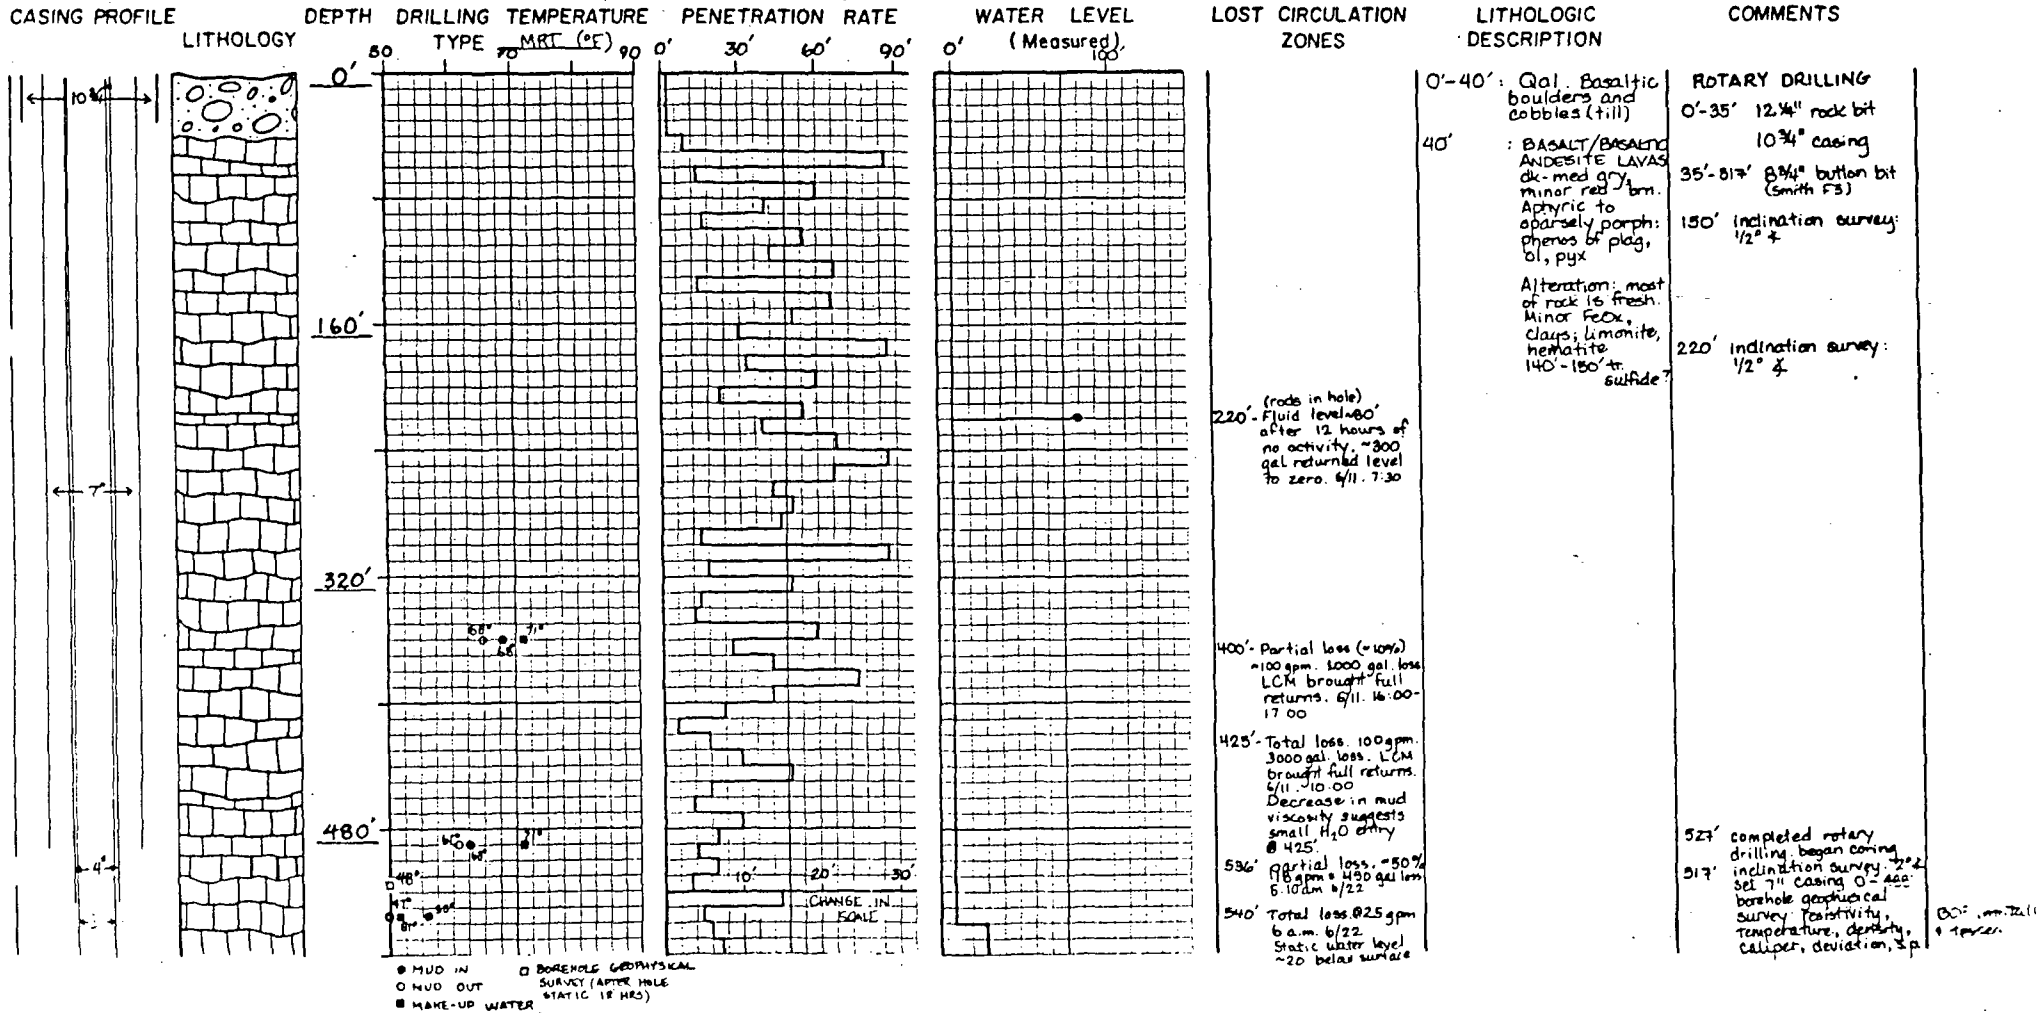 CASING PROFILE
LITHOLOGY
DEPTH
DRILLING TEMPERATURE
TYPE MRT (°F)
50 70 90
PENETRATION RATE
0' 30' 60' 90'
WATER LEVEL
(Measured)
0' 100'
LOST CIRCULATION
ZONES
LITHOLOGIC
DESCRIPTION
COMMENTS
10 3/4"
7"
4"
0'
160'
320'
480'
68° 71°
68°
71°
48°
47°
10' 20' 30'
CHANGE IN
SCALE
● MUD IN
○ MUD OUT
■ MAKE-UP WATER
□ BOREHOLE GEOPHYSICAL
SURVEY (AFTER HOLE
STATIC 12 HRS)
(rods in hole)
220'- Fluid level ~80'
after 12 hours of
no activity. ~300
gal returned level
to zero. 6/11. 7:30
400'- Partial loss (~10%)
~100 gpm. 1000 gal. loss
LCM brought full
returns. 6/11. 16:00-
17:00
425'- Total loss. 100 gpm.
3000 gal. loss. LCM
brought full returns.
6/11. 10:00
Decrease in mud
viscosity suggests
small H₂O entry
@ 425'.
536' partial loss. ~50%
gpm 490 gal loss
6/22
540' Total loss @25 gpm
6 a.m. 6/22
Static water level
~20 below surface
0'-40': Qal. Basaltic
boulders and
cobbles (till)
40' : BASALT/BASALTIC
ANDESITE LAVAS
dk-med gry,
minor red-brn.
Aphyric to
sparsely porph:
phenos of plag,
ol, pyx
Alteration: most
of rock is fresh.
Minor FeOx,
clays; limonite,
hematite
140'-150' tr.
sulfide?
ROTARY DRILLING
0'-35' 12 1/4" rock bit
10 3/4" casing
35'-517' 8 3/4" button bit
(Smith F3)
150' inclination survey:
1/2° ∡
220' inclination survey:
1/2° ∡
527' completed rotary
drilling. began coring
517' inclination survey. 2° ∡
Set 7" casing 0-
borehole geophysical
survey: resistivity,
temperature, density,
caliper, deviation, s.p.